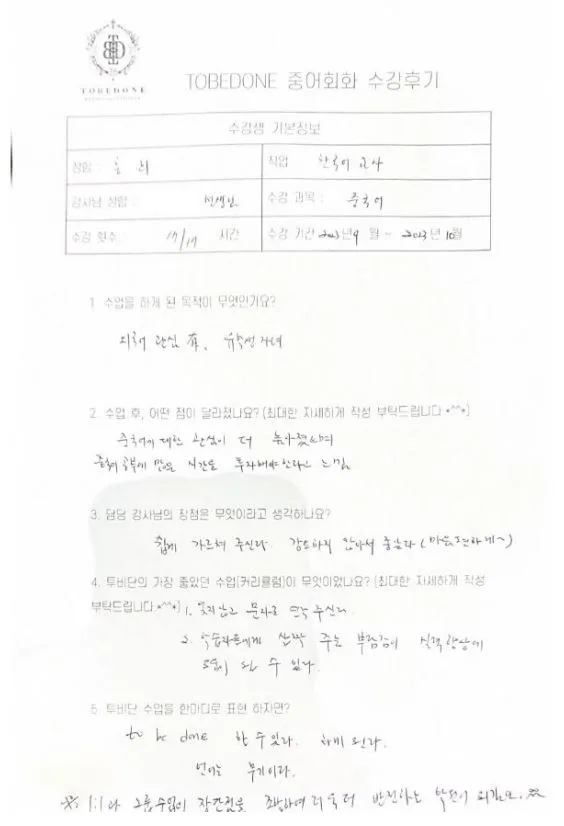 TOBEDONE
TOBEDONE 중어회화 수강후기
수강생 기본정보
성함 :
직업 한국어 교사
강사님 성함 : 선생님
수강 과목 : 중국어
수강 횟수 : 17/17 시간
수강 기간 2023년 9 월 ~ 2023 년 10월
1. 수업을 하게 된 목적이 무엇인가요?
관심 有, 유학생 자녀
2. 수업 후, 어떤 점이 달라졌나요? (최대한 자세하게 작성 부탁드립니다.*^^*)
중국어에 대한 관심이 더 높아졌으며
중국어 공부에 많은 시간을 투자해야 한다고 느낌
3. 담당 강사님의 장점은 무엇이라고 생각하나요?
쉽게 가르쳐 주신다. 강요하지 않아서 좋습니다 (마음 편하게~)
4. 투비단의 가장 좋았던 수업(커리큘럼)이 무엇이었나요? (최대한 자세하게 작성
부탁드립니다.*^^*) 1. 잊지않고 문자로 연락 주신다.
2. 학습자들에게 살짝 주는 부담감이 실력향상에
도움이 될 수 있다.
5. 투비단 수업을 한마디로 표현 하자면?
to be done 할 수 있다. 하게 된다.
언어는 무기이다.
※ 1:1과 그룹수업의 장단점을 조합하여 더욱 더 발전하는